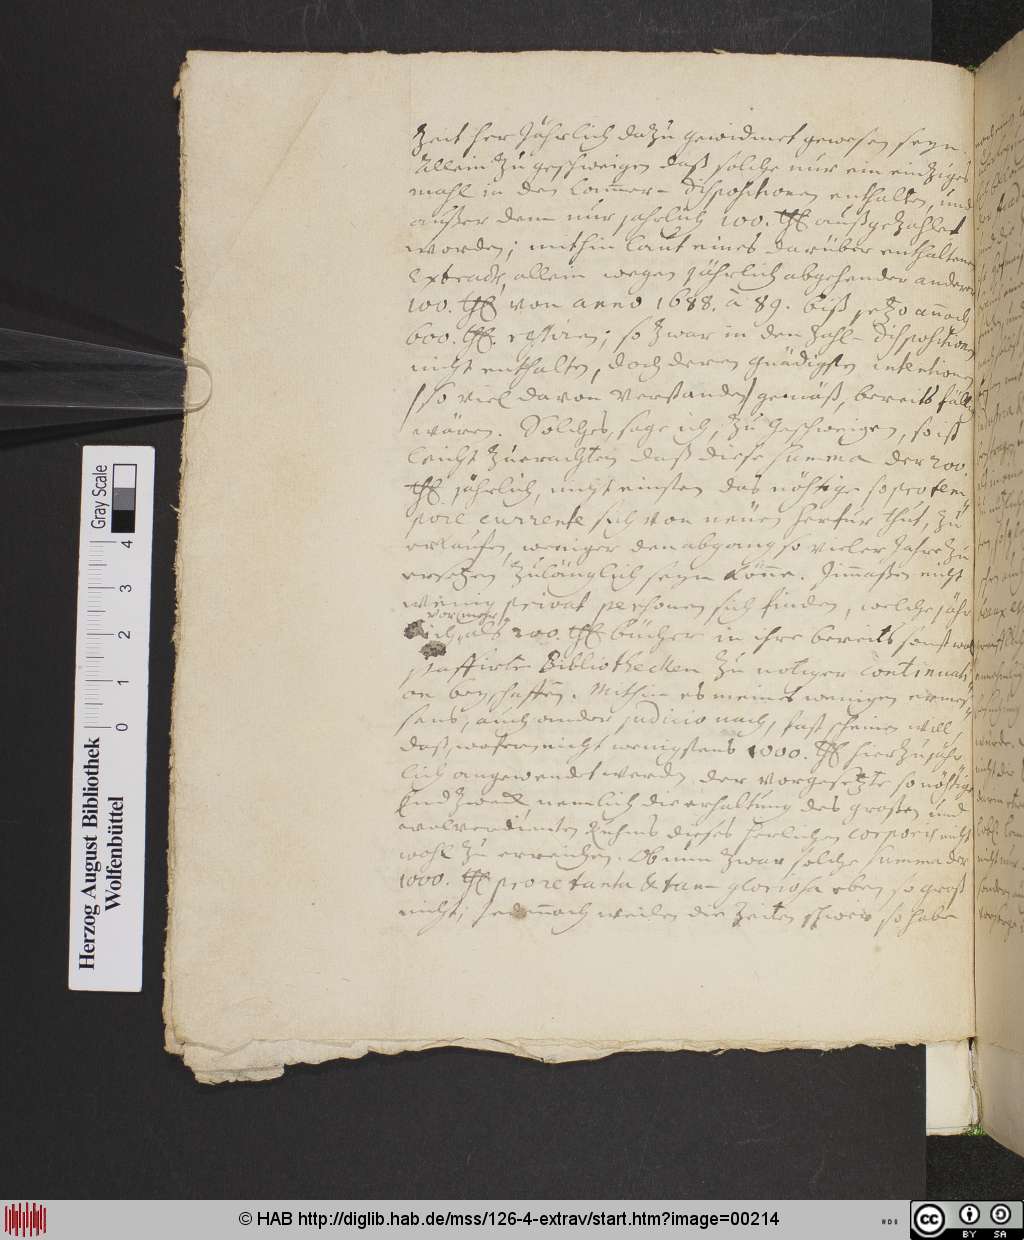 Zeit her Jährlich dazu gewidmet gewesen seyn.
Allein zu geschweigen daß solche nur ein eintziges
mahl in den Cammer-dispositionen enthalten, und
außer dem nur jährlich 100. thl außgezahlet
worden; mithin laut eines darüber enthaltenen
Extracts, allein wegen jährlich abgehender anderer
100. thl von anno 1688. à 89. biß jetzo annoch
600. thl. restiren; so zwar in den Zahl-dispositionen
nicht enthalten, doch deren gnädigsten intention
/so viel davon verstanden/ gemäß, bereits fällig
wären. Solches, sage ich, zu geschweigen, so ist
leicht zuerachten daß diese summa der 200.
thl jährlich, nicht einsten das nöhtige so pro tem-
pore currente sich von neüen herfür thut, zu
erkaufen, weniger den abgang so vieler Jahre zu
ersetzen zulänglich seyn könne. Immaßen nicht
wenig privat personen sich finden, welche jähr
vor mehr
lich, als 200. thl bücher in ihre bereits sonst wol
staffirte Bibliothecken zu nötiger continuati-
on beyschaffen. Mithin es meines wenigen ermes-
sens, auch ander judicio nach, fast scheinen will,
daß, wofern nicht wenigstens 1000. thl hierzu jähr
lich angewendet werden, der vorgesetzte so nöhtige
Endzweck nemlich die erhaltung des großen und
wolverdienten Ruhms dieses herlichen corporis nicht
wohl zu erreichen. Ob nun zwar solche summa der
1000. thl pro re tanta & tam gloriosa eben so groß
nicht; jedennoch weilen die Zeiten schwer, so habe
Gray Scale
0 1 2 3 4
Herzog August Bibliothek
Wolfenbüttel
© HAB http://diglib.hab.de/mss/126-4-extrav/start.htm?image=00214
cc BY SA